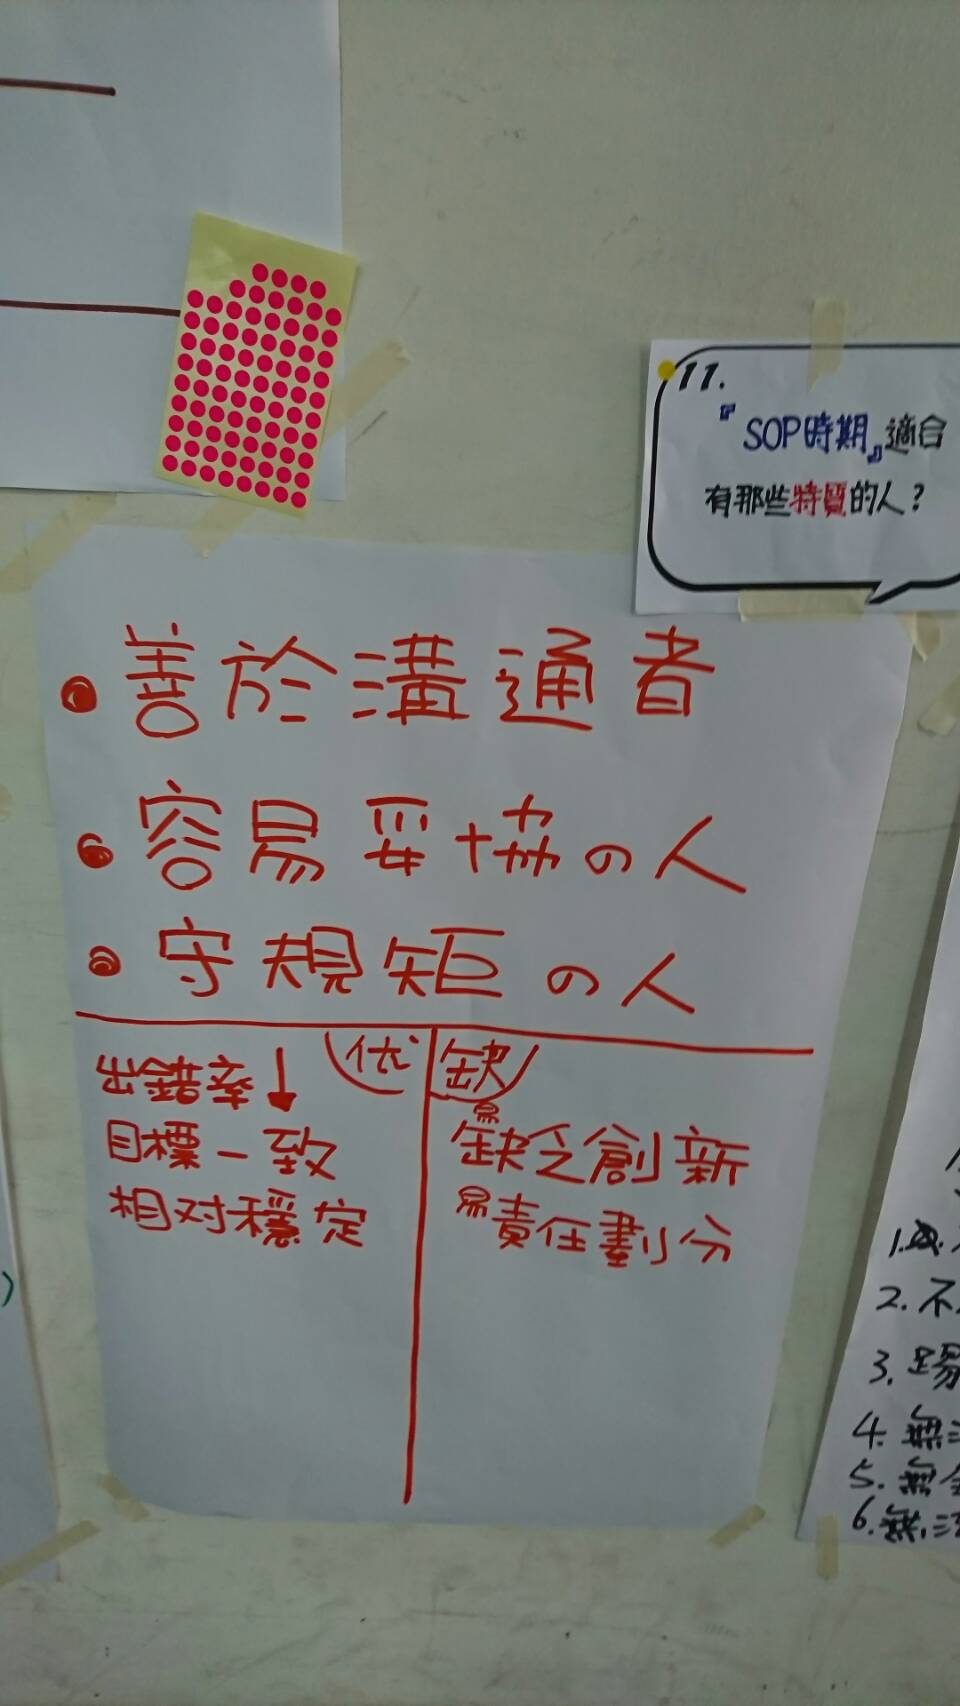 11.
『SOP時期』適合
有那些特質的人?
• 善於溝通者
• 容易妥協の人
• 守規矩の人
优
出錯率↓
目標一致
相对穩定
缺
易缺乏創新
易責任劃分
1.
2. 不
3. 易
4. 無
5. 無
6. 無